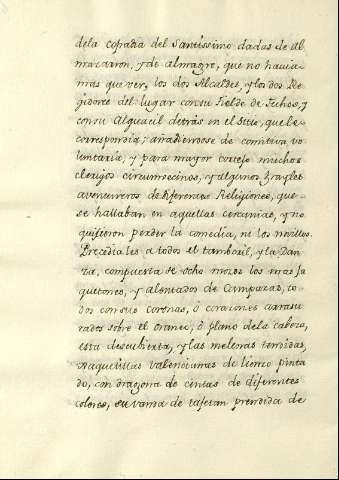 dela cofradia del Santissimo dadas de Al
mazarron, y de almagre, que no havia
mas que ver, los dos Alcaldes, y los dos Re
gidores del lugar con su Fielde de Fechos, y
con su Alguacil detrás en el Sitio, que le
correspondia; añadiendose de comitiva vo
luntaria, y para mayor cortejo muchos
clerigos circumvecinos, y algunos Frayles
aventureros de diferentes Religiones, que
se hallaban en aquellas cercanias, y no
quisieron perder la comedia, ni los novillos.
Precedia les a todos el tamboril, y la Dan
za, compuesta de ocho mozos los mas ja
quetones, y alentados de Campazas, to
dos con sus coronas, ò corazones arrasu
rados sobre el craneo, ò plano dela cabeza,
esta descubierta, y las melenas tendidas,
vaquerillas valencianas de lienzo pinta
do, con dragona de cintas de diferentes
colores, su vanda de tafetan prendida de